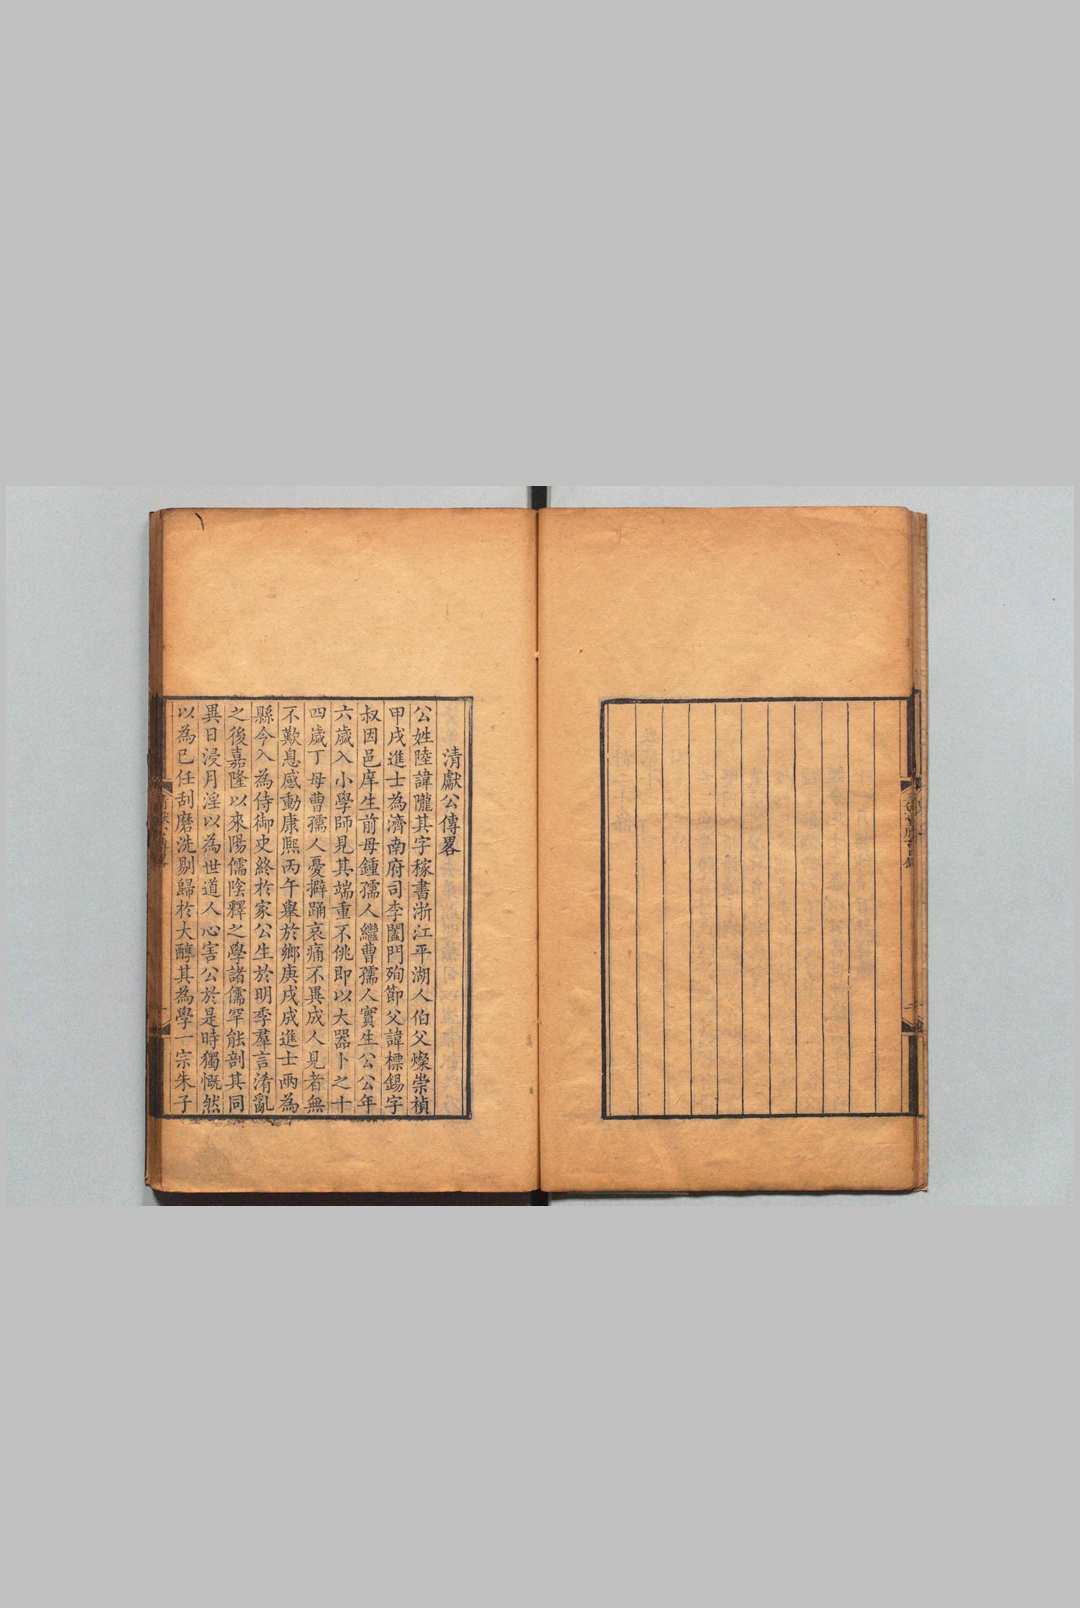 清獻公傳畧
公姓陸諱隴其字稼書浙江平湖人伯父燦崇禎
甲戌進士為濟南府司李闔門殉節父諱標錫字
叔因邑庠生前母鍾孺人繼曹孺人實生公公年
六歲入小學師見其端重不佻即以大器卜之十
四歲丁母曹孺人憂擗踊哀痛不異成人見者無
不歎息感動康熙丙午舉於鄉庚戌成進士兩為
縣令入為侍御史終於家公生於明季羣言淆亂
之後嘉隆以來陽儒陰釋之學諸儒罕能剖其同
異日浸月淫以為世道人心害公於是時獨慨然
以為己任刮磨洗剔歸於大醇其為學一宗朱子